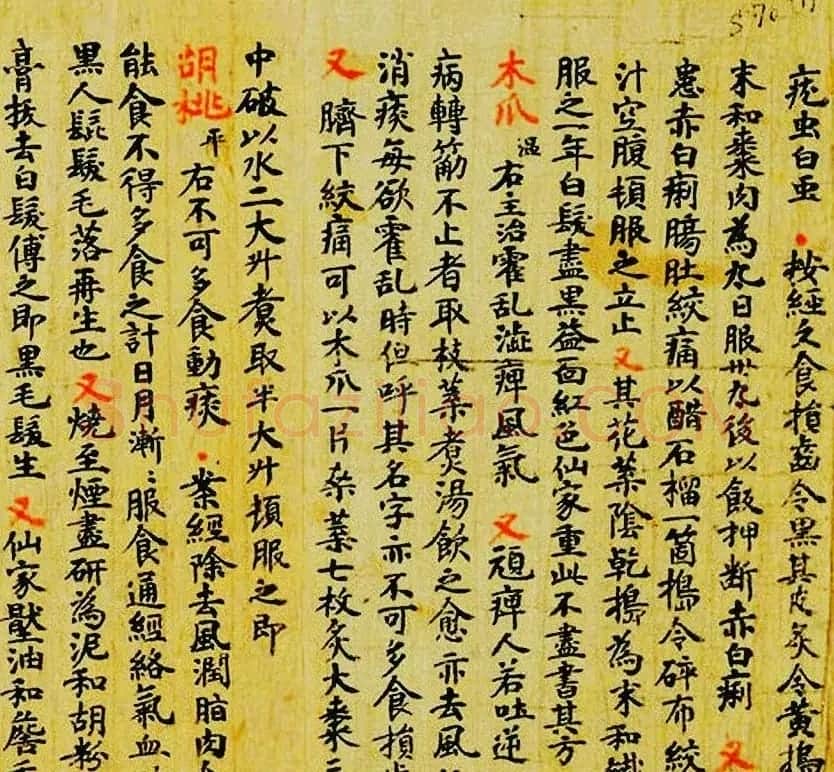 S 76
疣虫白虫 ・按經之食損齒令黑其皮炙令黃搗
末和棗肉為丸日服卅丸後以飯押斷赤白痢 又
患赤白痢腸肚絞痛以醋石榴一箇搗令碎布絞
汁空腹頓服之立止 又其花葉陰乾搗為末和鐵
服之一年白髮盡黑益面紅色仙家重此不盡書其方
木瓜 溫 右主治霍乱澁痹風氣 又頑痹人若吐逆
病轉筋不止者取枝葉煮湯飲之愈亦去風
消痰每欲霍乱時但呼其名字亦不可多食損
又 臍下絞痛可以木瓜一片桒葉七枚炙大棗
中破以水二大升煮取半大升頓服之即
胡桃 平 右不可多食動痰 ・案經除去風潤脂肉
能食不得多食之計日月漸〻服食通經絡氣血
黑人髭髮毛落再生也 又燒至煙盡研為泥和胡粉
膏拔去白髮傅之即黑毛髮生 又仙家壓油和詹
shufaziliao.com